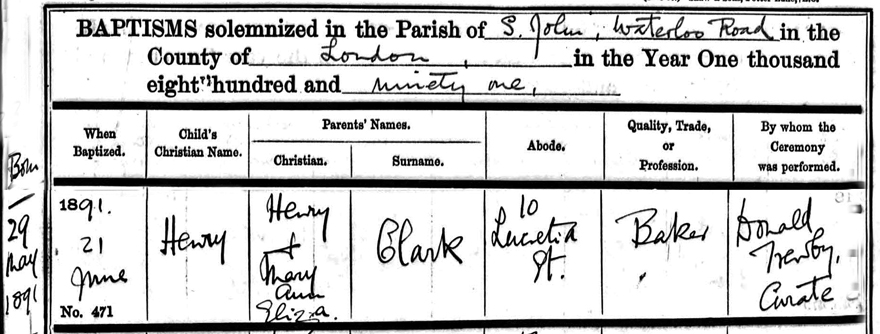 BAPTISMS solemnized in the Parish of S. John, Waterloo Road in the
County of London, in the Year One thousand
eight hundred and ninety one,
When Baptized.
Child's Christian Name.
Parents' Names.
Christian.
Surname.
Abode.
Quality, Trade, or Profession.
By whom the Ceremony was performed.
Born
—
29
May
1891
1891.
21
June
No. 471
Henry
Henry
&
Mary
Ann
Eliza.
Clark
10
Lucretia
St.
Baker
Donald
Curate